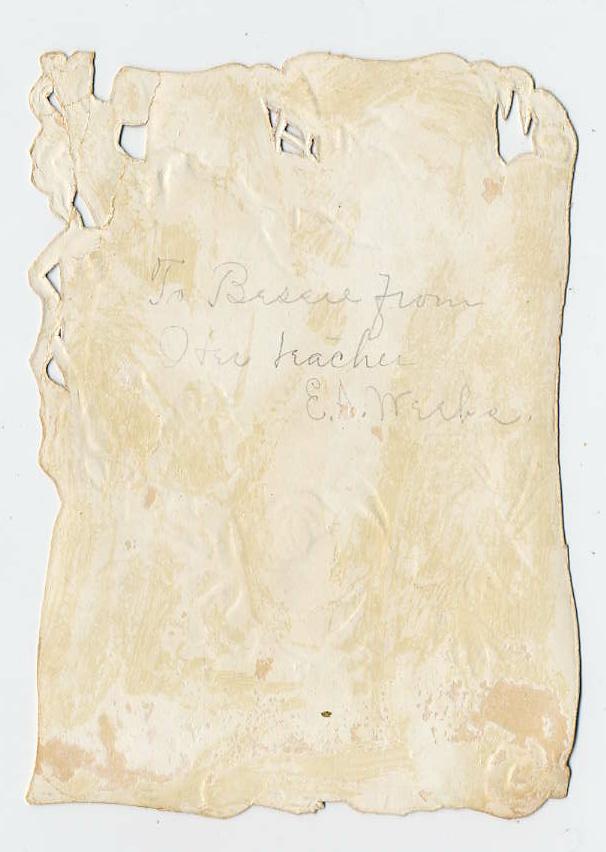 To Bessie from
Her teacher
E.A. Weeks.